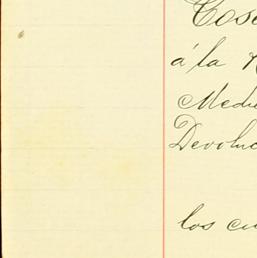 Cose
á la
Medi
Devoluc
los cu